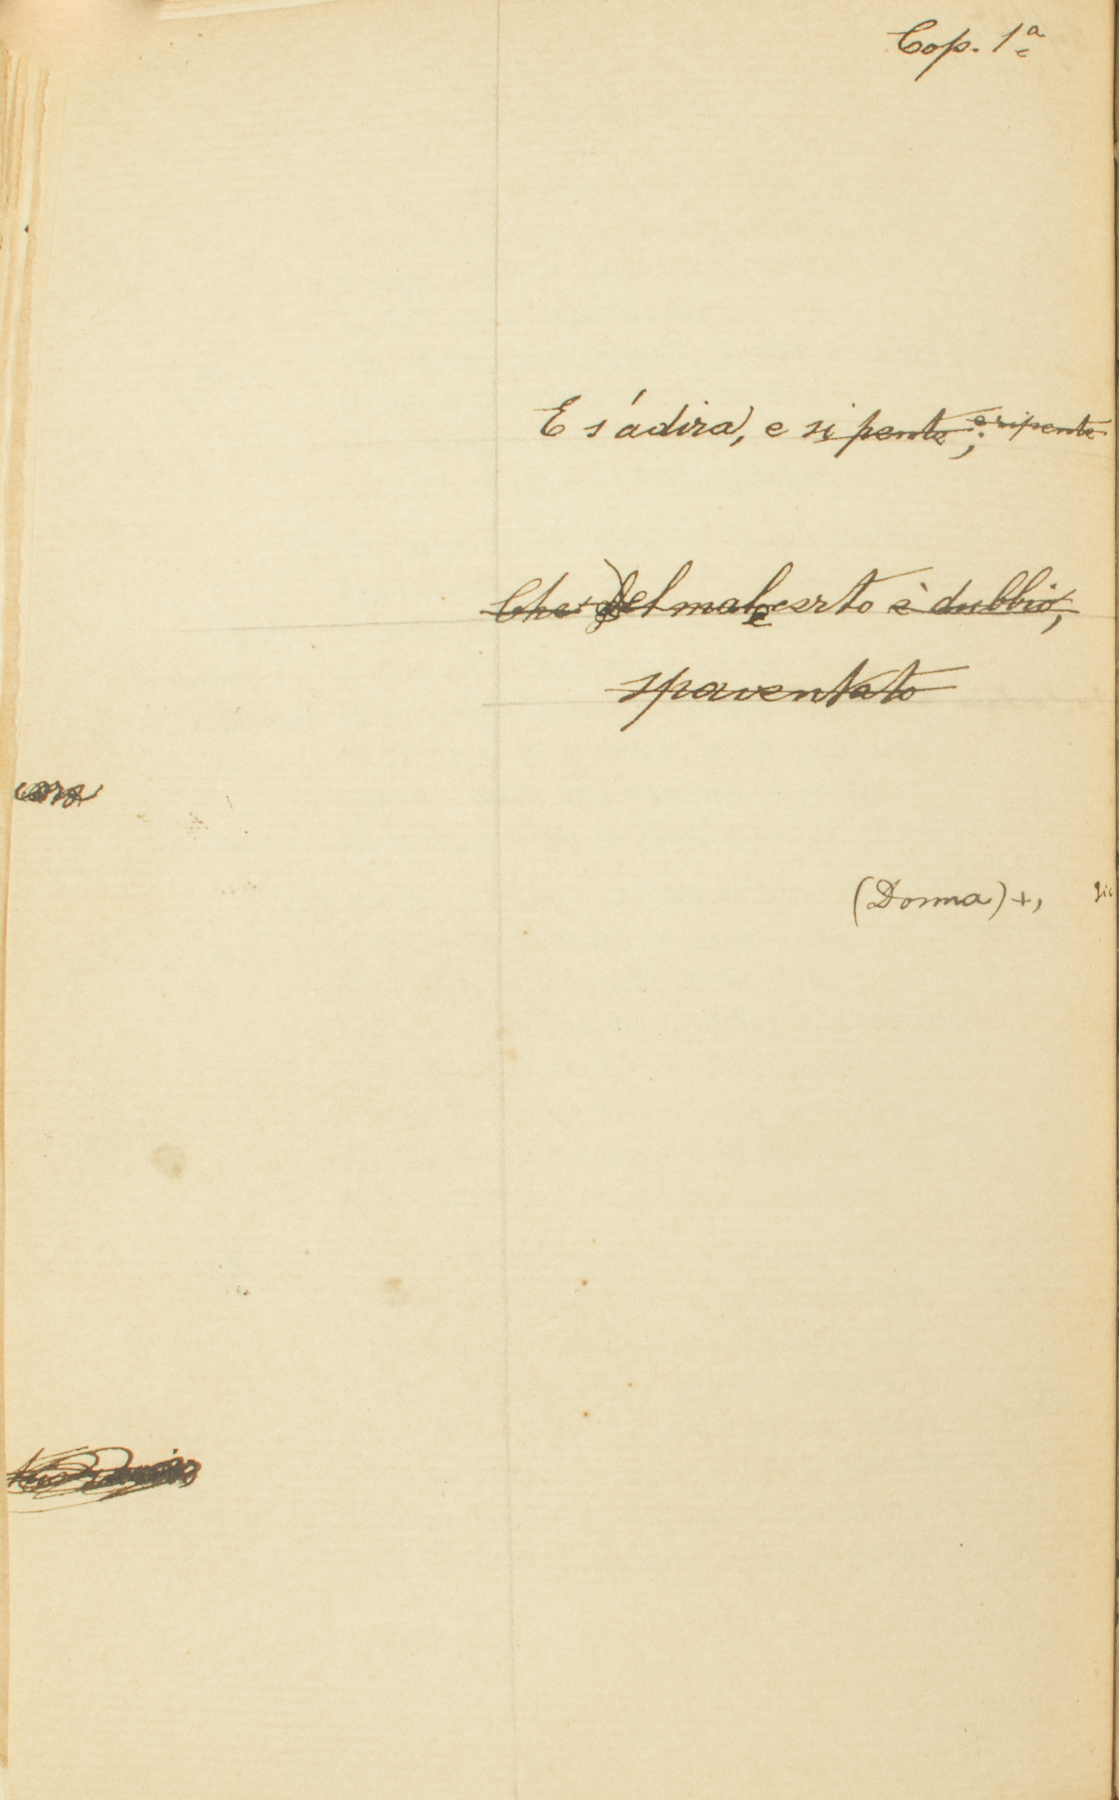 Cop. 1ª
E s'adira, e si pente; e ripente
Che del male certo è dubbio,
spaventato
(Donna)+,